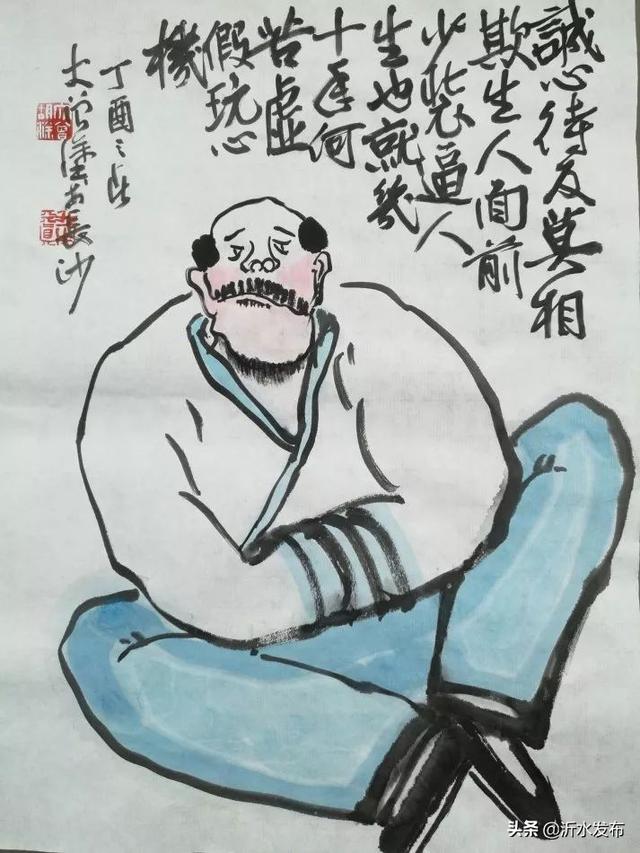 誠心待友莫相
欺生人面前
少裝逼人
生也就幾
十年何
苦虛
假玩心
機
丁酉之
長沙
头条 @沂水发布